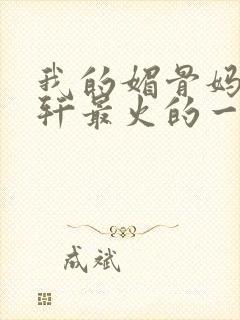 我的媚骨妈
轩最火的一
成斌